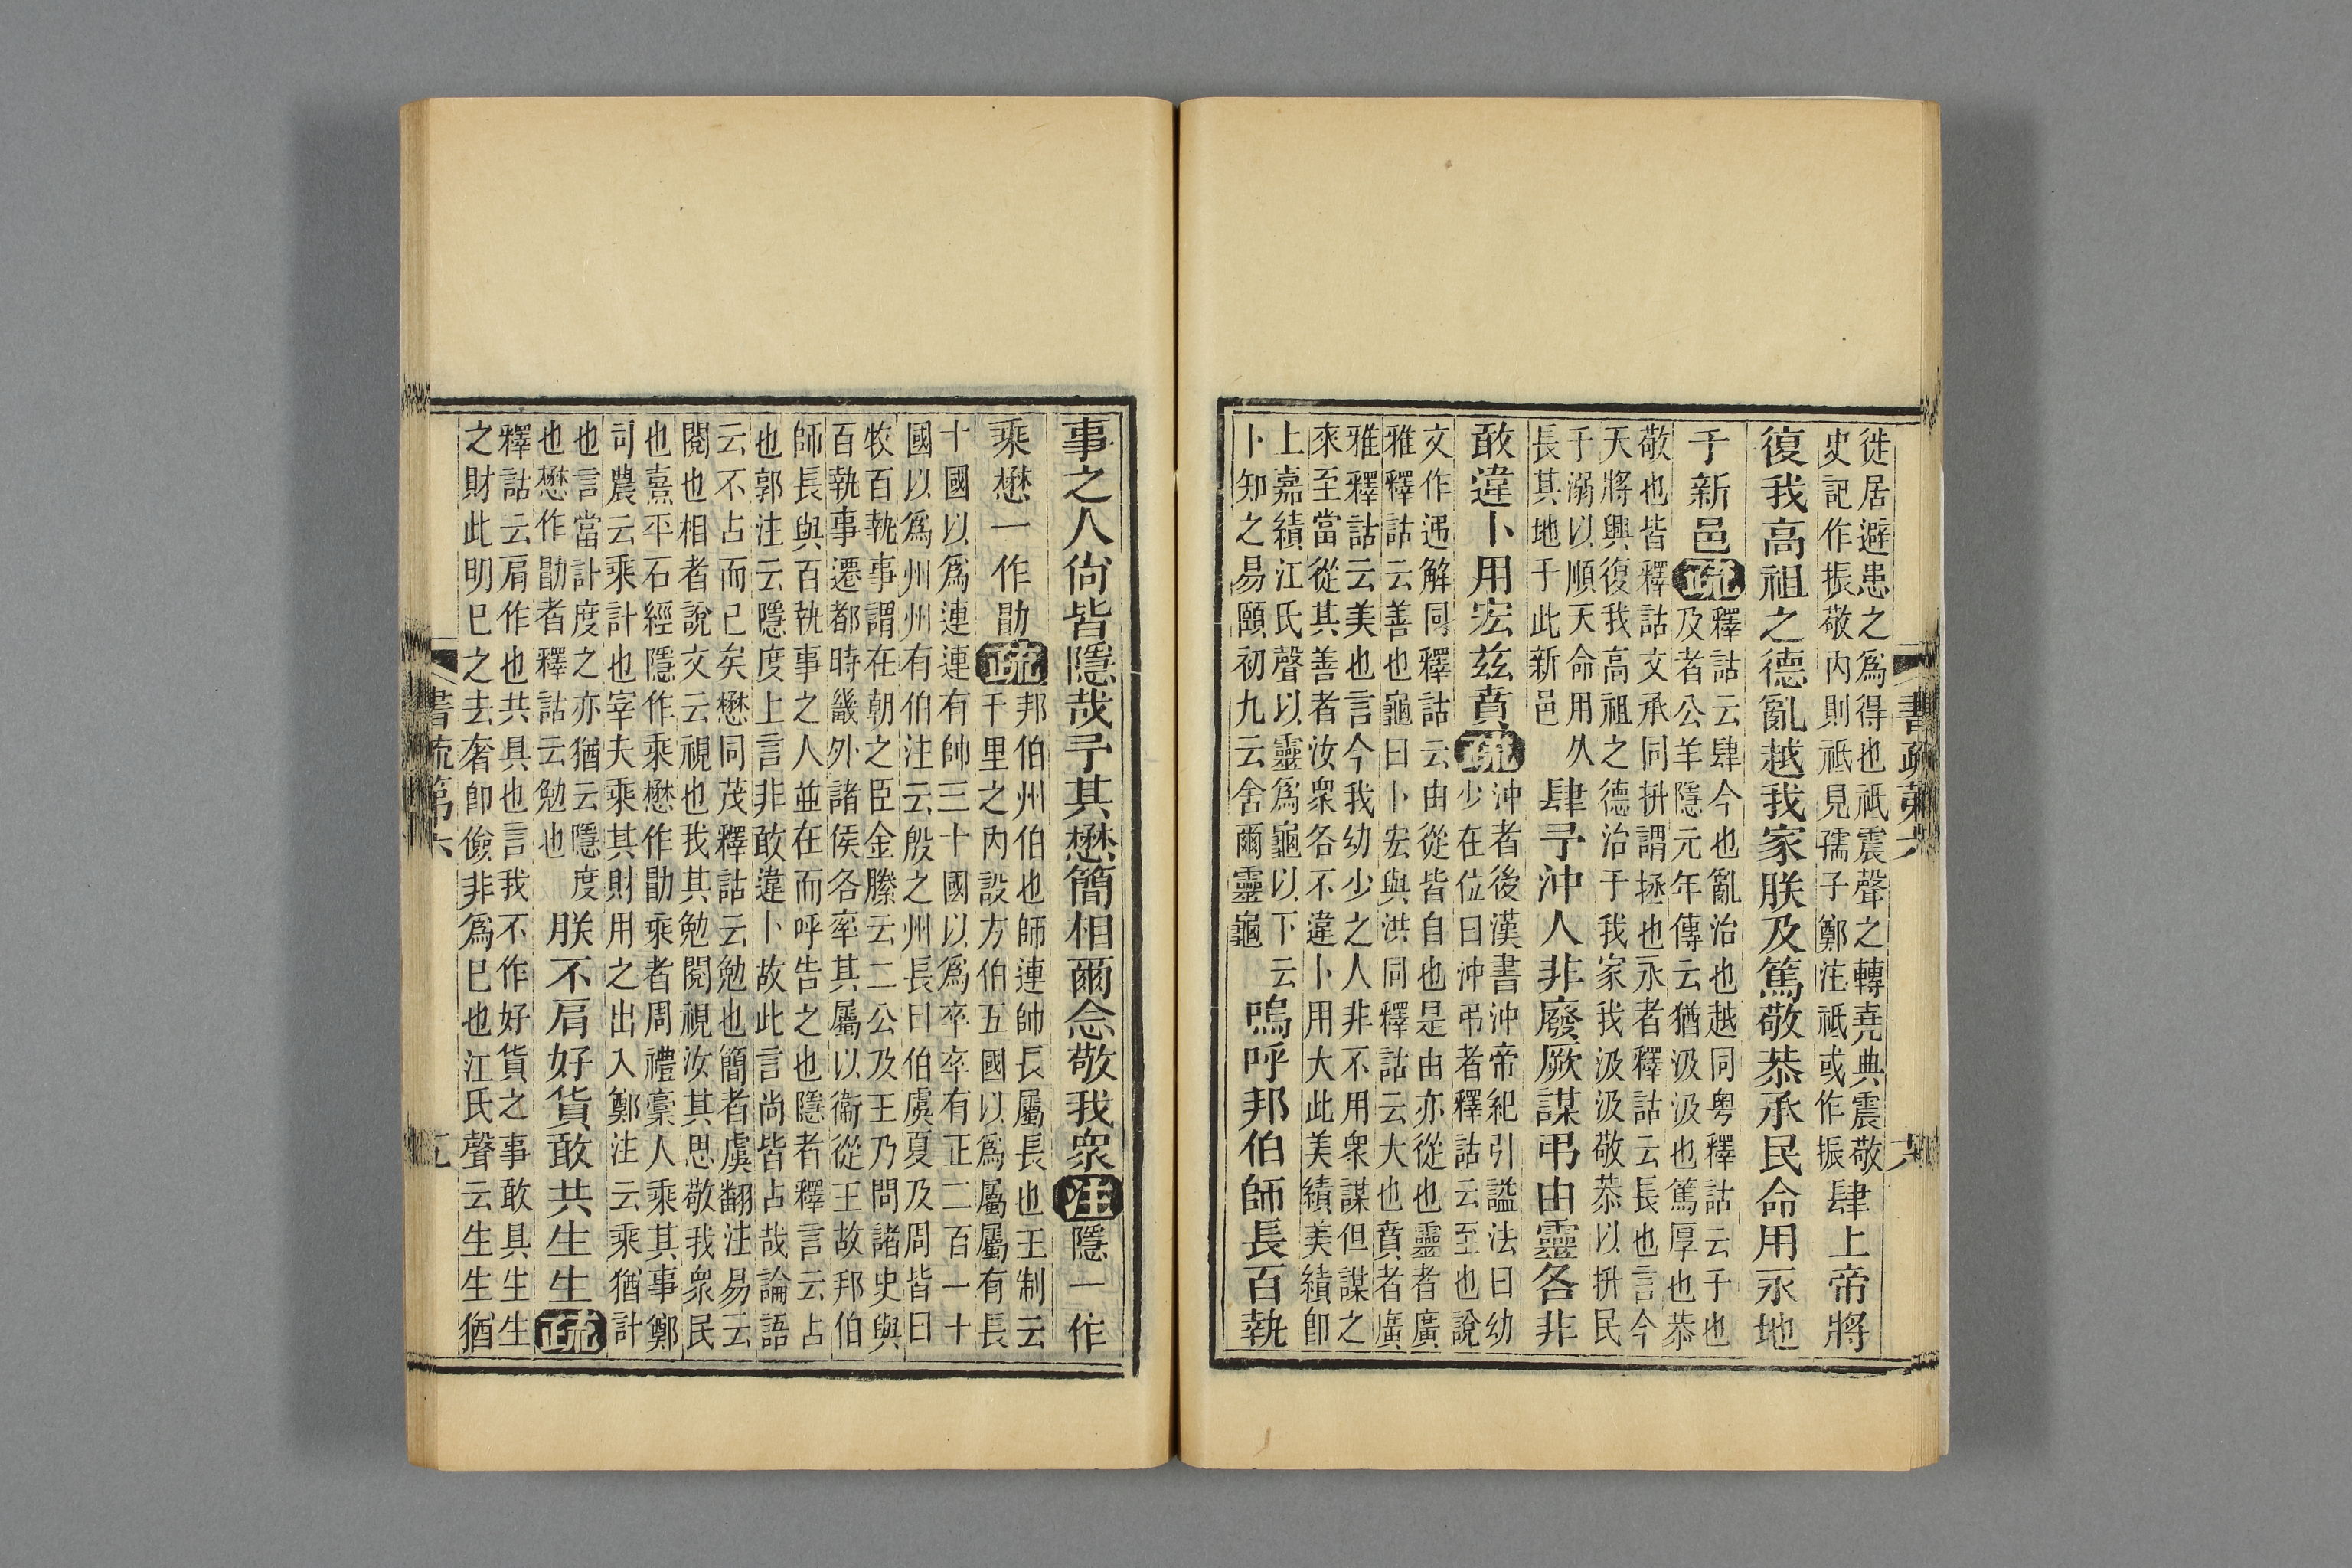 徙居避患之為得也祗震聲之轉堯典震敬
史記作振敬內則祗見孺子鄭注祗或作振
肆上帝將
復我高祖之德亂越我家朕及篤敬恭承民命用永地
于新邑
疏
釋詁云肆今也亂治也越同粵釋詁云于也
及者公羊隱元年傳云猶汲汲也篤厚也恭
敬也皆釋詁文承同拼謂拯也永者釋詁云長也言今
天將興復我高祖之德治于我家我汲汲敬恭以拼民
于溺以順天命用久
長其地于此新邑
肆予沖人非廢厥謀弔由靈各非
敢違卜用宏茲賁
疏
沖者後漢書沖帝紀引謚法曰幼
少在位曰沖弔者釋詁云至也說
文作迌解同釋詁云由從皆自也是由亦從也靈者廣
雅釋詁云善也龜曰卜宏與洪同釋詁云大也賁者廣
雅釋詁云美也言今我幼少之人非不用衆謀但謀之
來至當從其善者汝衆各不違卜用大此美績美績即
上嘉績江氏聲以靈為龜以下云
卜知之易頤初九云舍爾靈龜
嗚呼邦伯師長百執
書疏第六
六
事之人尙皆隱哉予其懋簡相爾念敬我衆
注
隱一作
乘懋一作勖
疏
邦伯州伯也師連帥長屬長也王制云
千里之內設方伯五國以為屬屬有長
十國以為連連有帥三十國以為卒卒有正二百一十
國以為州州有伯注云殷之州長曰伯虞夏及周皆曰
牧百執事謂在朝之臣金縢云二公及王乃問諸史與
百執事遷都時畿外諸侯各率其屬以衞從王故邦伯
師長與百執事之人並在而呼告之也隱者釋言云占
也郭注云隱度上言非敢違卜故此言尚皆占哉論語
云不占而已矣懋同茂釋詁云勉也簡者虞翻注易云
閱也相者說文云視也我其勉閱視汝其思敬我衆民
也熹平石經隱作乘懋作勖乘者周禮稾人乘其事鄭
司農云乘計也宰夫乘其財用之出入鄭注云乘猶計
也言當計度之亦猶云隱度
也懋作勖者釋詁云勉也
朕不肩好貨敢共生生
疏
釋詁云肩作也共具也言我不作好貨之事敢具生生
之財此明已之去奢卽儉非為已也江氏聲云生生猶
書疏第六